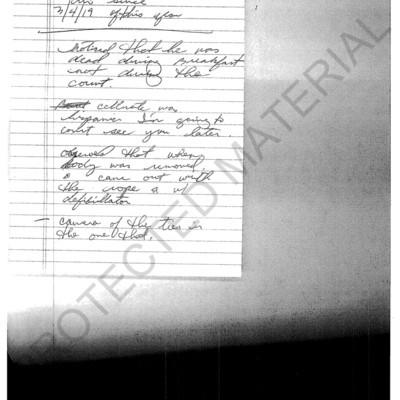 since
3/4/19 of this year
noticed that he was
dead during breakfast
not during the
count.
cellmate was
hispanic I'm going to
court see you later.
observed that when
body was removed
came out with
the rope a w/
defibillator
– camera of the tier is
the one that.
PROTECTED MATERIAL